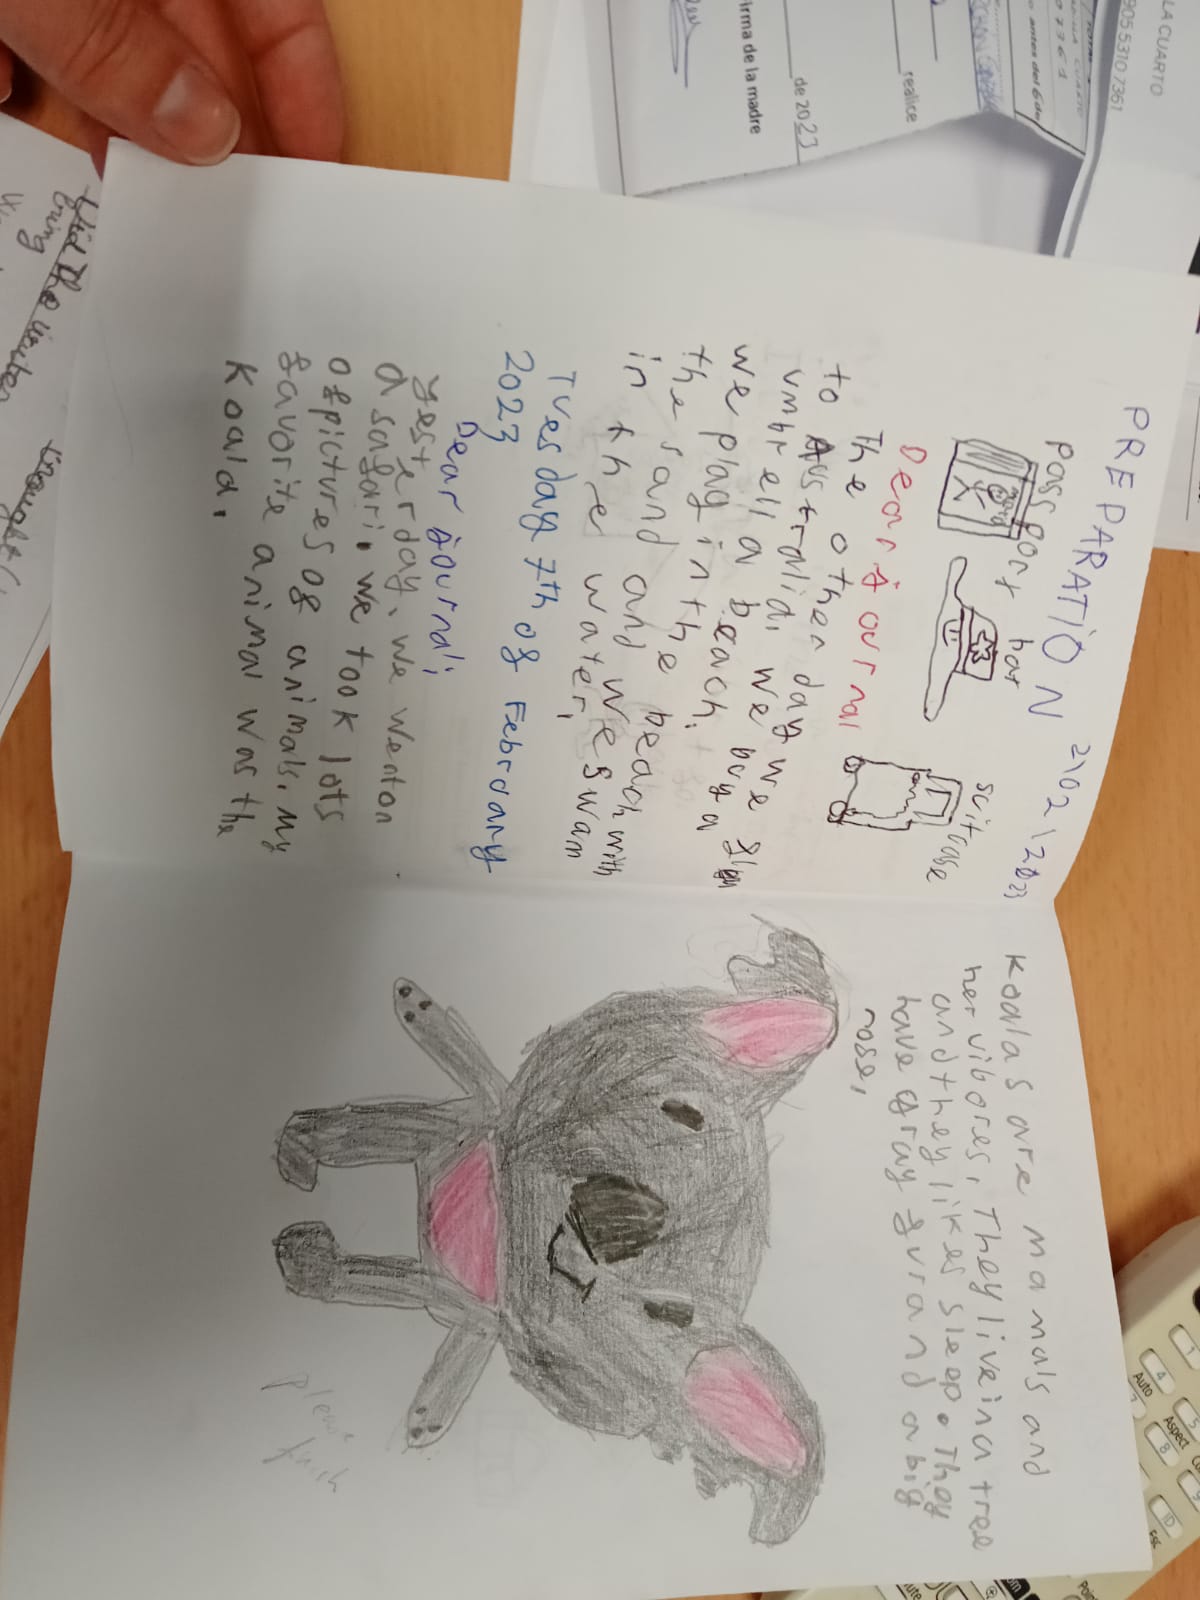 PREPARATION 2\02\2023
passport hat suitcase
Dear journal
The other day we flew
to Australia, we buy a
umbrella beach.
we play in the
the sand and the beach with
in ther water, we swam
Tuesday 7th of February
2023
Dear journal:
Yesterday, we went on
a safari, we took lots
of pictures of animals. My
favorite animal was the
Koala.
Koalas are mamals and
hervibores, They live in a tree
and they likes sleep. They
have gray fur and a big
nose,
please
finish
LA CUARTO
905 5310 7361
realice
de 2023
irma de la madre
bring
brought
1
4
5
7
8
Auto
Aspect
ID
Esc